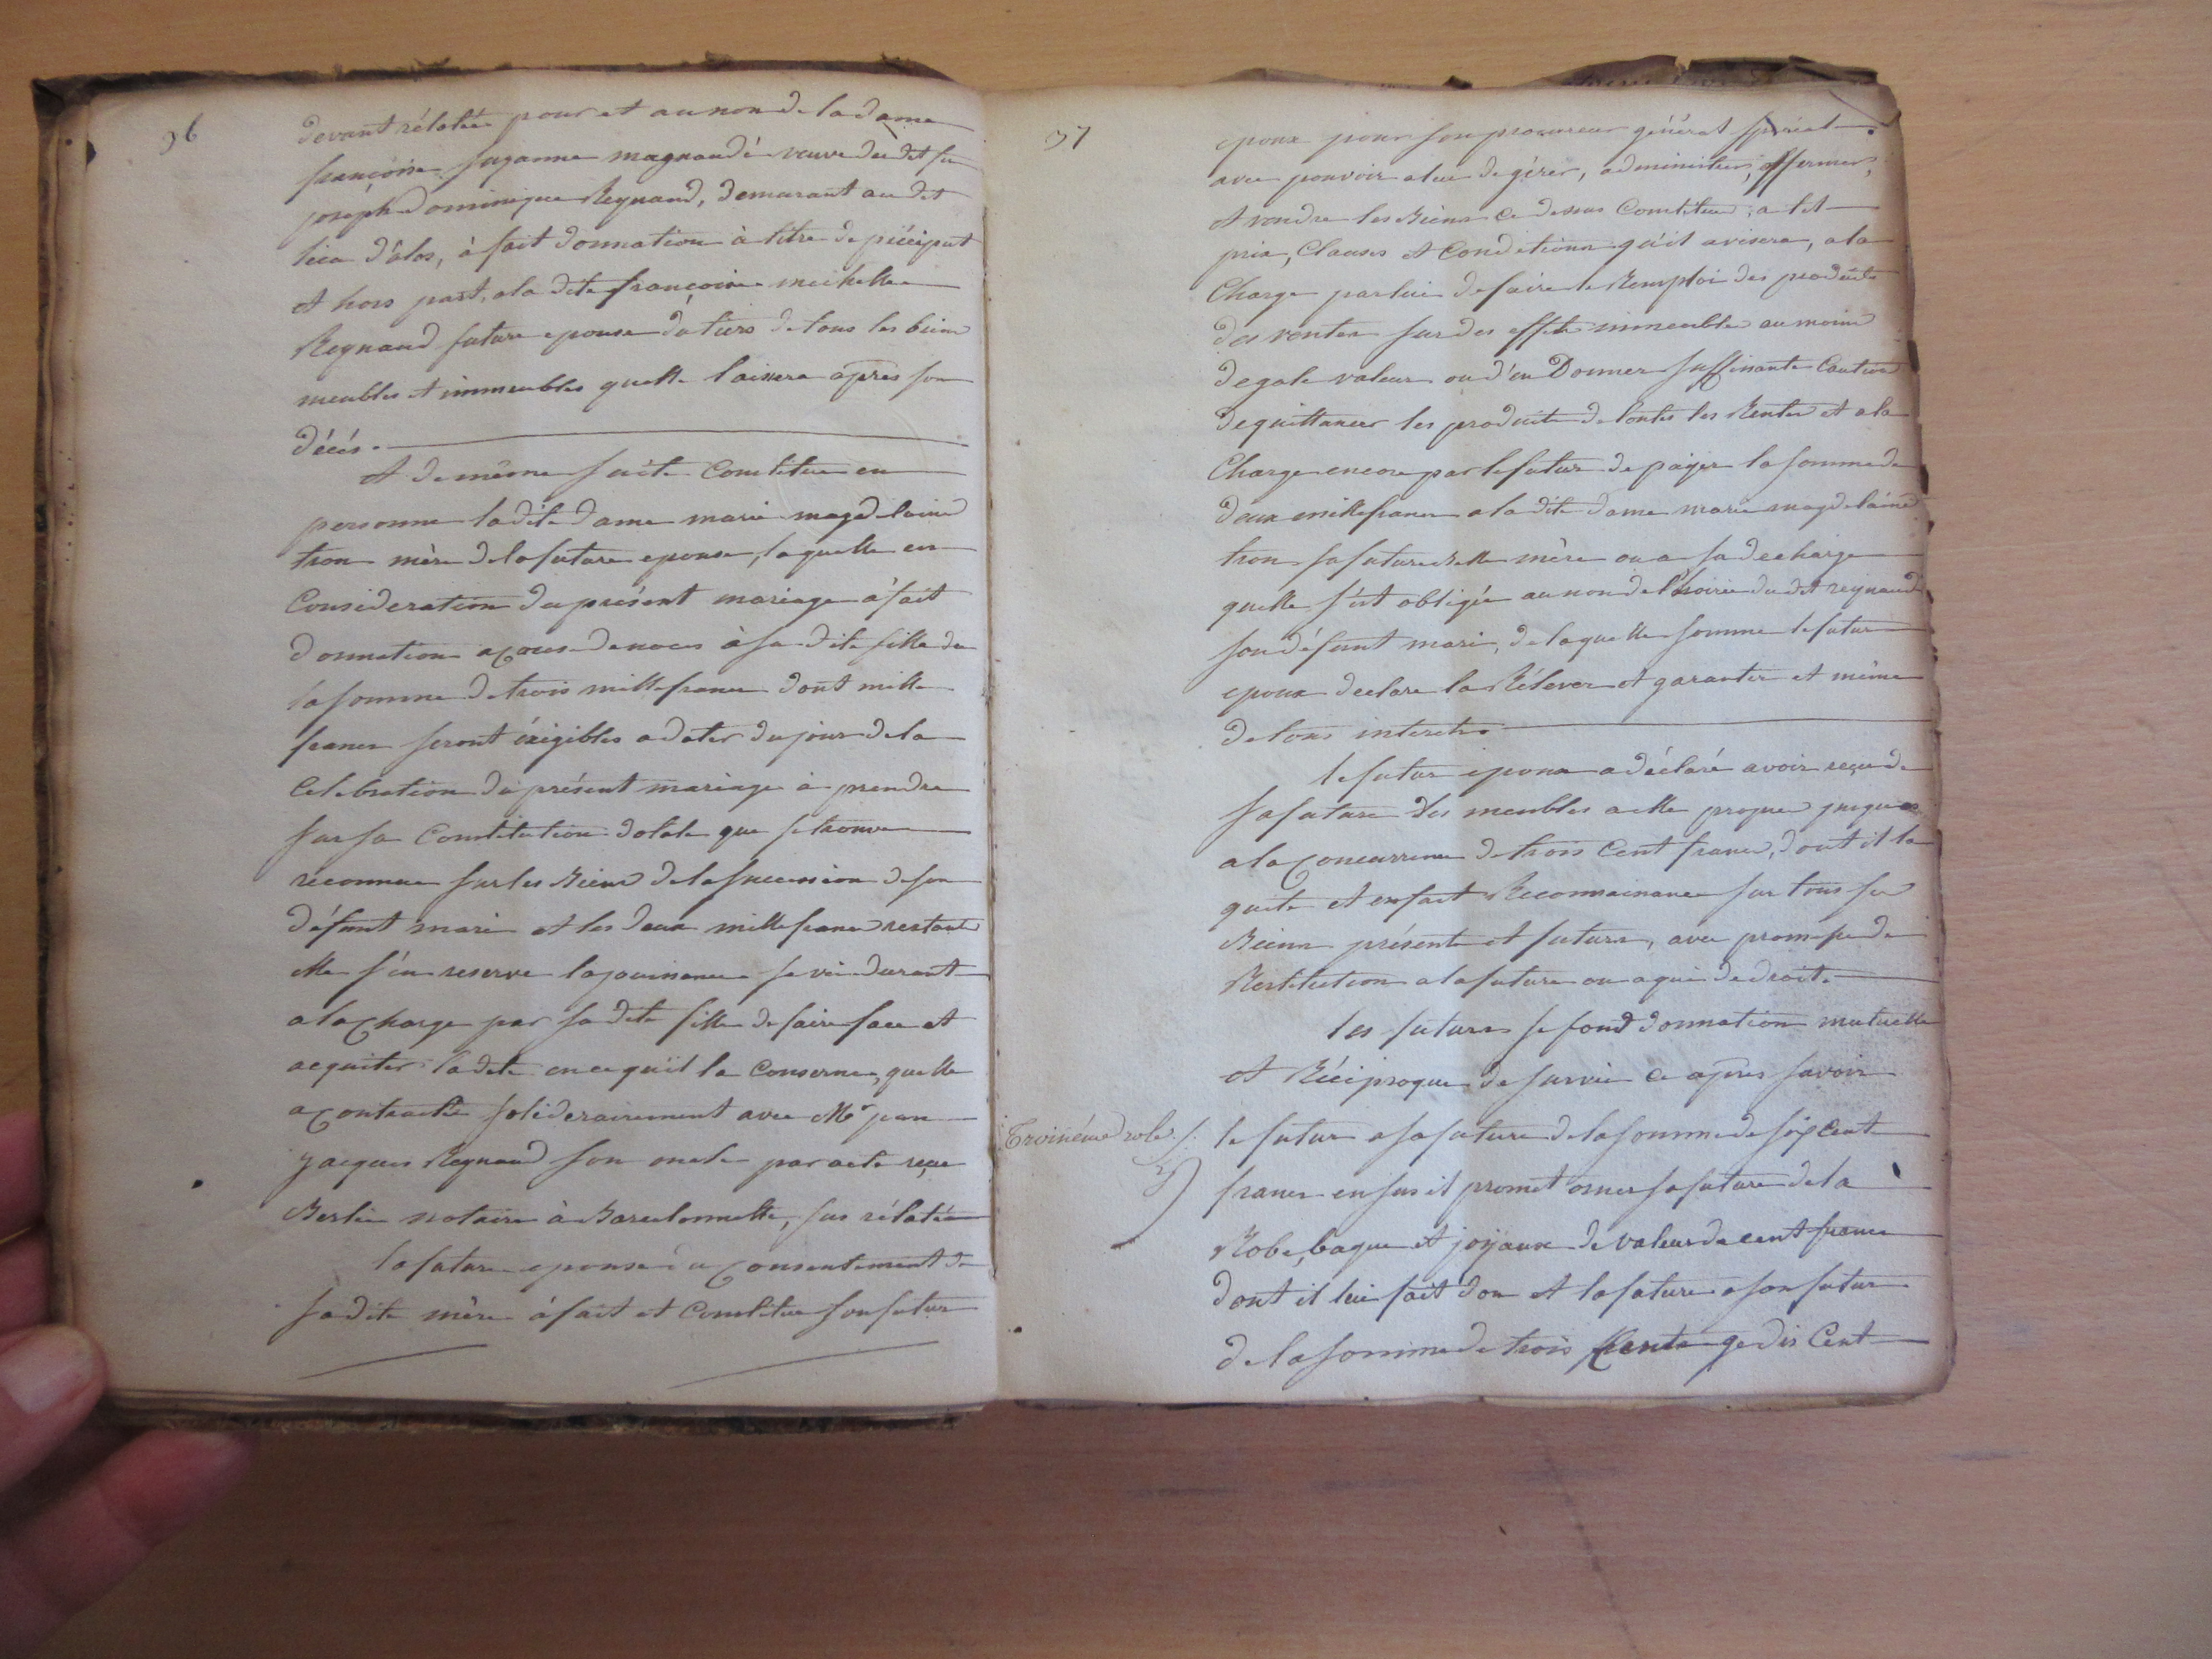 96
devant rélatée pour et au nom de la dame
françoise suzanne magnaudé veuve du dit feu
joseph Dominique Reynaud, demurant au dit
lieu d'alos, à fait donnation à titre de préciput
et hors part, a la dite françoise michelle
Reynaud future epouse du tiers de tous les biens
meubles et immeubles quelle laissera après son
décés.
et de même suite constitue en
personne la dite dame marie magdelaine
tron mère de la future epouse, laquelle en
Consideration du présent mariage à fait
donnation a cause de noces à sa dite fille de
la somme de trois mille francs dont mille
francs seront éxigibles a dater du jour de la
Celebration du présent mariage à prendre
sur sa Constitution dotale que se trouve
reconnue sur les Biens de la succession de son
défunt mari et les deux mille francs restant
elle s'en reserve la jouissance sa vie durant
a la charge par sa dite fille de faire face et
acquiter la dete en ce qu'il la Conserne, quelle
a contractée soliderairement avec Mr jean
jacques Reynaud son oncle par acte reçue
Berlie notaire à Barcelonnette, sus rélatée
la future epouse du consentement de
sa dite mère à fait et Constitue son futur
97
epoux pour son procureur général spécial
avec pouvoir a lui de gérer, administrer, affermer,
et vendre les Biens ce dessus Constitues, a tel
prix, Clauses et Conditions qu'il avisera, a la
Charge par lui de faire le Remploi des produits
des ventes sur des effets immeubles au moins
d'egale valeur ou d'en Donner suffisante Caution
de quittancer les produits de toutes les Rentes et a la
Charge encore par le futur de payer la somme de
deux mille francs a la dite dame marie magdelaine
tron sa future Belle mère ou a sa decharge
quelle s'est obligée au nom de l'hoirie du dit reynaud
son défunt mari, de laquelle somme le futur
epoux declare la Rélever et garantir et même
de tous interets.
le futur epoux a déclaré avoir reçu de
sa future des meubles a elle propres jusques
a la concurrence de trois Cent francs, dont il la
quite et en fait Reconnoissance sur tous ses
Biens présents et futurs, avec promesse de
Restitution a la future ou a qui de droit.
les futurs se fond donnation mutuelle
et Réciproque de survie ce après savoir
Troisiéme role
le futur a sa future de la somme de six Cent
francs en sus il promet orner sa future de la
Robe, bague et joyaux de valeur de cent francs
dont il lui fait don et la future a son futur
de la somme de trois Cent